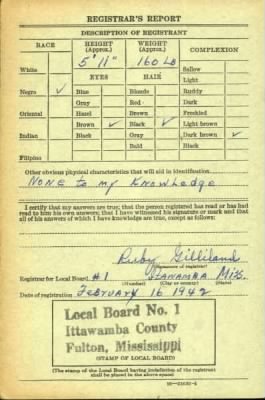 REGISTRAR'S REPORT
DESCRIPTION OF REGISTRANT
RACE HEIGHT (Approx.) WEIGHT (Approx.) COMPLEXION
5' 11" 160 Lb
White Sallow
EYES HAIR Light
Negro ✓ Blue Blonde Ruddy
Gray Red Dark
Oriental Hazel Brown Freckled
Brown ✓ Black ✓ Light brown
Indian Black Gray Dark brown ✓
Bald Black
Filipino
Other obvious physical characteristics that will aid in identification
None to my knowledge
I certify that my answers are true; that the person registered has read or has had
read to him his own answers; that I have witnessed his signature or mark and that
all of his answers of which I have knowledge are true, except as follows:
Ruby Gilliland
(Signature of registrar)
Registrar for Local Board #1 Itawamba Miss.
(Number) (City or county) (State)
Date of registration February 16 1942
Local Board No. 1
Ittawamba County
Fulton, Mississippi
(STAMP OF LOCAL BOARD)
(The stamp of the Local Board having jurisdiction of the registrant
shall be placed in the above space)